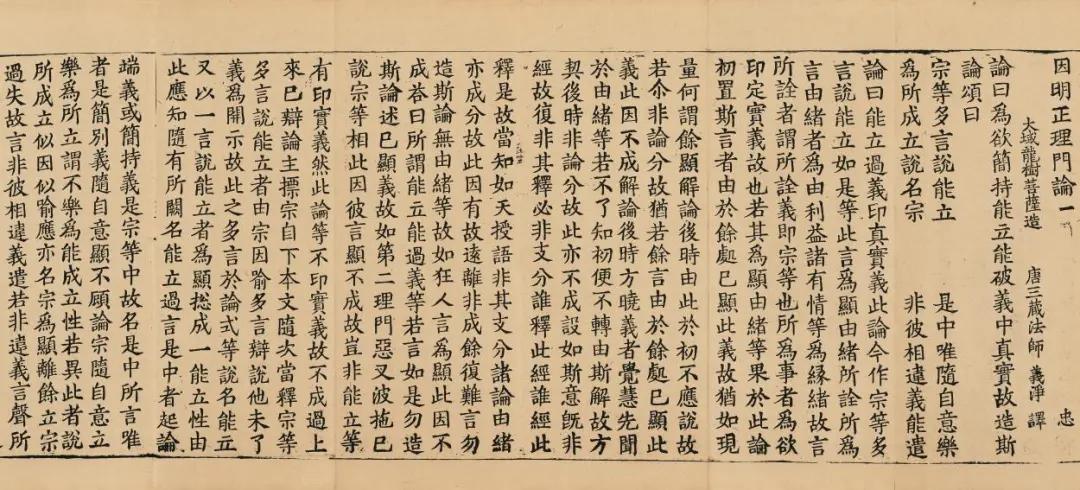 因明正理門論一 忠
大域龍樹菩薩造 唐三藏法師 義淨 譯
論曰爲欲簡持能立能破義中真實故造斯
論頌曰
宗等多言說能立 是中唯隨自意樂
爲所成立說名宗 非彼相違義能遣
論曰能立過義印真實義此論今作宗等多
言說能立如是等此言爲顯由緒所詮所爲
言由緒者爲由利益諸有情等爲緣故言
所詮者謂所詮義即宗等也所爲事者爲欲
印定實義故也若其爲顯由緒等果於此論
初置斯言者由於餘處已顯此義故猶如現
量何謂餘顯解論後時由此於初不應說故
若尒非論分故猶若餘言由於餘處已顯此
義此因不成解論後時方曉義者覺慧先聞
於由緒等若不了知初便不轉由斯解故方
契後時非論分故此亦不成設如斯意旣非
經故復非其釋必非支分誰釋此經誰經此
釋是故當知如天授語非其支分諸論由緒
亦成分故此因有故遠離非成餘復難言勿
造斯論無由緒等故如狂人言爲顯此因不
成故答曰所謂能立能過義等若言如是勿造
斯論述已顯義故如第二理門惡叉波拖已
說宗等相此因彼言顯不成故豈非能立等
有印實義然此論等不印實義故不成過上
來已辯論主摽宗自下本文隨次當釋宗等
多言說能立者由宗因喻多言辯說他未了
義爲開示故此之多言於論式等說名能立
又以一言說能立者爲顯揔成一能立性由
此應知隨有所闕名能立過言是中者起論
端義或簡持義是宗等中故名是中所言唯
者是簡別義隨自意顯不顧論宗隨自意立
樂爲所立謂不樂爲能成立性若異此者說
所成立似因似喻應亦名宗爲顯離餘立宗
過失故言非彼相違義遣若非違義言聲所